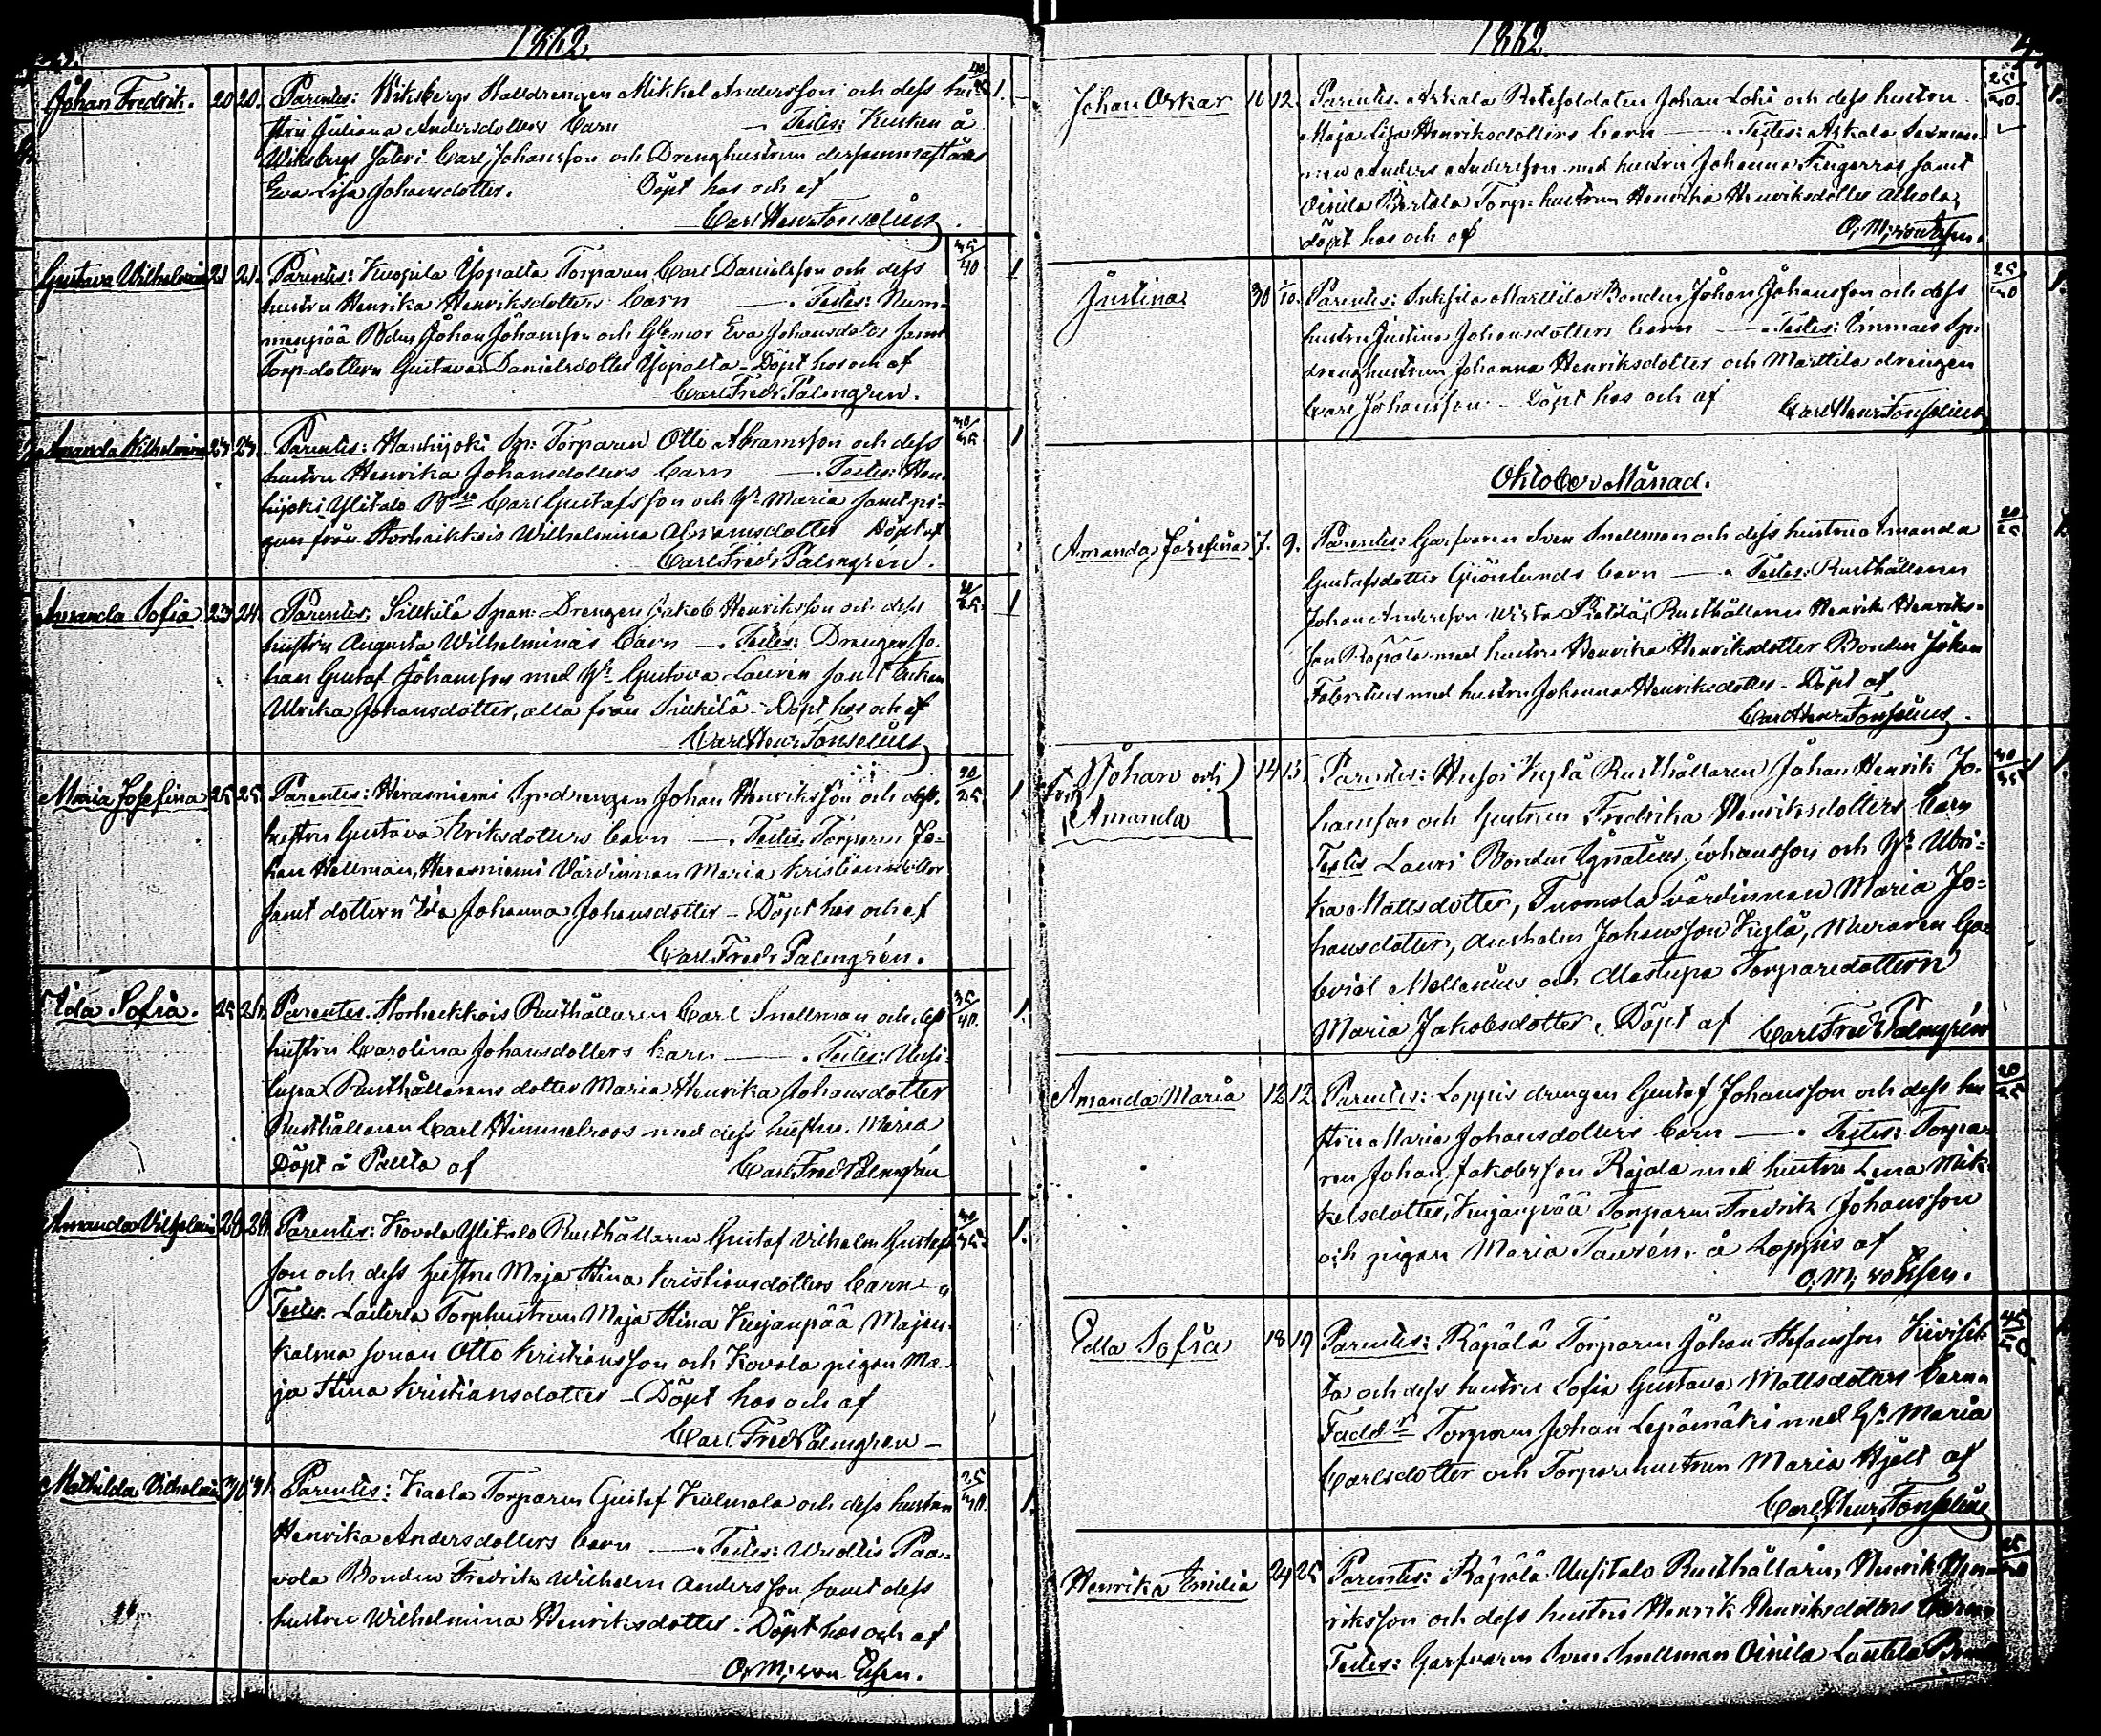 1862.
Johan Fredrik. 20 20. Parentes: Wiksbergs Stalldrengen Mikkel Andersson och dess hu- 40/45 1.
stru Juliana Andersdotters barn — Testes: Kusken å
Wiksbergs Säteri Carl Johansson och Drenghustrun dersammastädes
Eva Lisa Johansdotter. Döpt hos och af
Carl Henr. Fonselius
Gustava Wilhelmina 21 21. Parentes: Yopalta Torparen Carl Danielsson och dess 35/40 1
hustru Henrika Henriksdotters barn — Testes: Num-
menpää Bdn Johan Johansson och Gl:mor Eva Johansdotter samt
Torp-dottern Gustava Danielsdotter Yopalta - Döpt hos och af
Carl Fredr. Palmgrén.
Amanda Wilhelmina 23 24. Parentes: Hanhijoki Sp: Torparen Otto Abramsson och dess 30/35 1
hustru Henrika Johansdotters barn — Testes: Han-
hijoki Ylitalo Carl Gustafsson och H:u Maria samt pi-
gan från Storheikkois Wilhelmina Abramsdotter Döpt af
Carl Fredr. Palmgrén.
Amanda Sofia 23 24. Parentes: Sillkilä Span: Drengen Jakob Henriksson och dess 20/25 1
hustru Augusta Wilhelminas barn — Testes: Drengen Jo-
han Gustaf Johansson med H:u Gustava Laurén samt Enkan
Ulrika Johansdotter, alla från Sillkilä - Döpt hos och af
Carl Henr. Fonselius
Maria Josefina 25 25. Parentes: Herasniemi Sp:drengen Johan Henriksson och dess 20/25 1
hustru Gustava Eriksdotters barn — Testes: Torparen Jo-
han Hellman, Herasniemi Värdinnan Maria Kristiansdotter
samt dottern Ida Johanna Johansdotter - Döpt hos och af
Carl Fredr. Palmgrén.
Ida Sofia. 25 26. Parentes. Storheikkois Rusthållaren Carl Snellman och dess 35/40. 1.
hustru Carolina Johansdotters barn — Testes: Uusi-
lupa Rusthållarens dotter Maria Henrika Johansdotter
Rusthållaren Carl Himmelroos med dess hustru Maria
Döpt å Palta af Carl Fred Palmgrén
Amanda Vilhelmina 28 28. Parentes: Kovola Ylitalo Rusthållaren Gustaf Vilhelm Gustafs- 30/35. 1.
son och dess hustru Maja Stina Kristiansdotters barn —
Testes: Torphustrun Maja Stina Kujanpää Majan-
kalma sonen Otto Kristiansson och Kovola pigan Ma-
ja Stina Kristiansdotter - Döpt hos och af
Carl Fred Palmgren -
Mathilda Vilhelmina 30 31. Parentes: Kaela Torparen Gustaf Kulmala och dess hustru 25/30. 1.
Henrika Andersdotters barn — Testes: Wuoltis Paa-
vola Bonden Fredrik Wilhelm Andersson samt dess
hustru Wilhelmina Henriksdotter. Döpt hos och af
O. M. von Essen.
1862.
Johan Oskar 10 12. Parentes. Askala Rotesoldaten Johan Lohi och dess hustru 25/30. 1.
Maja Lisa Henriksdotters barn — Testes: Askala Sexman-
nen Anders Andersson med hustru Johanna Fingerroos samt
Oinila Bertala Torp: hustrun Henrika Henriksdotter Alhola,
döpt hos och af O. M. von Essen.
Justina 30 1/10. Parentes: Marttila Bonden Johan Johansson och dess 25/30 1.
hustru Justina Johansdotters barn — Testes: Sp:
drenghustrun Johanna Henriksdotter och Marttila drengen
Carl Johansson - Döpt hos och af Carl Henr. Fonselius
Oktober Månad.
Amanda Josefina 7. 9. Parentes: Garfvaren Sven Snellman och dess hustru Amanda 20/25 1.
Gustafsdotter Grönlunds barn — Testes: Rusthållaren
Johan Andersson Wista Pietilä, Rusthållaren Henrik Henriks-
son Räpälä med hustru Henrika Henriksdotter Bonden Johan
Fabritius med hustru Johanna Henriksdotter - Döpt af
Carl Henr. Fonselius.
Johan och 14 15. Parentes: Huso Kylä Rusthållaren Johan Henrik Jo- 30/35 1.
Amanda hansson och hustrun Fredrika Henriksdotters barn
Testes Lauri Bonden Ignatius Johansson och H:u Ulri-
ka Mattsdotter, Tuomola värdinnan Maria Jo-
hansdotter, Johansson Kylä, Muraren Ga-
briel Mellenius och Torparedottern
Maria Jakobsdotter. Döpt af Carl Fredr. Palmgrén
Amanda Maria 12 12 Parentes: Loppis drengen Gustaf Johansson och dess hu- 20/25
stru Maria Johansdotters barn — Testes: Torpa-
ren Johan Jakobsson Rajala med hustru Lena Mik-
kelsdotter, Kujanpää Torparen Fredrik Johansson
och pigan Maria Taurén. å Loppis af
O. M. v Essen.
Edla Sofia 18 19 Parentes: Räpälä Torparen Johan Stefansson Kivisil- 45/50.
ta och dess hustru Sofia Gustava Mattsdotters barn
Fadd:r Torparen Johan Lepämäki med H:u Maria
Carlsdotter och Torparehustrun Maria Hjelt af
Carl Henr. Fonselius
Henrika Emilia 24 25 Parentes: Räpälä Uusitalo Rusthållaren, Henrik Hen- 25/30
riksson och dess hustru Henrik Henriksdotters barn
Testes: Garfvaren Sven Snellman Oinila Lautela